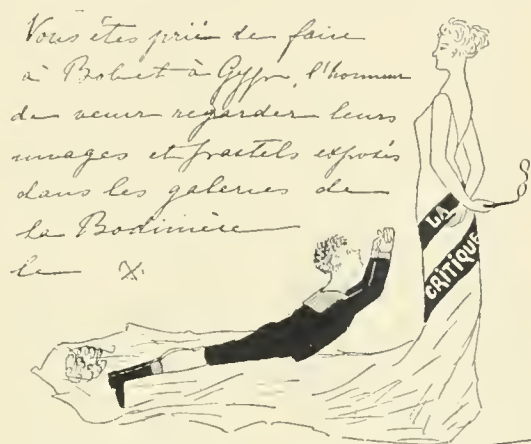 Vous êtes prié de faire
à Bobuet à Gyp, l'honneur
de venir regarder leurs
images et pastels exposés
dans les galeries de
la Bodinière
le X.
LA
CRITIQUE